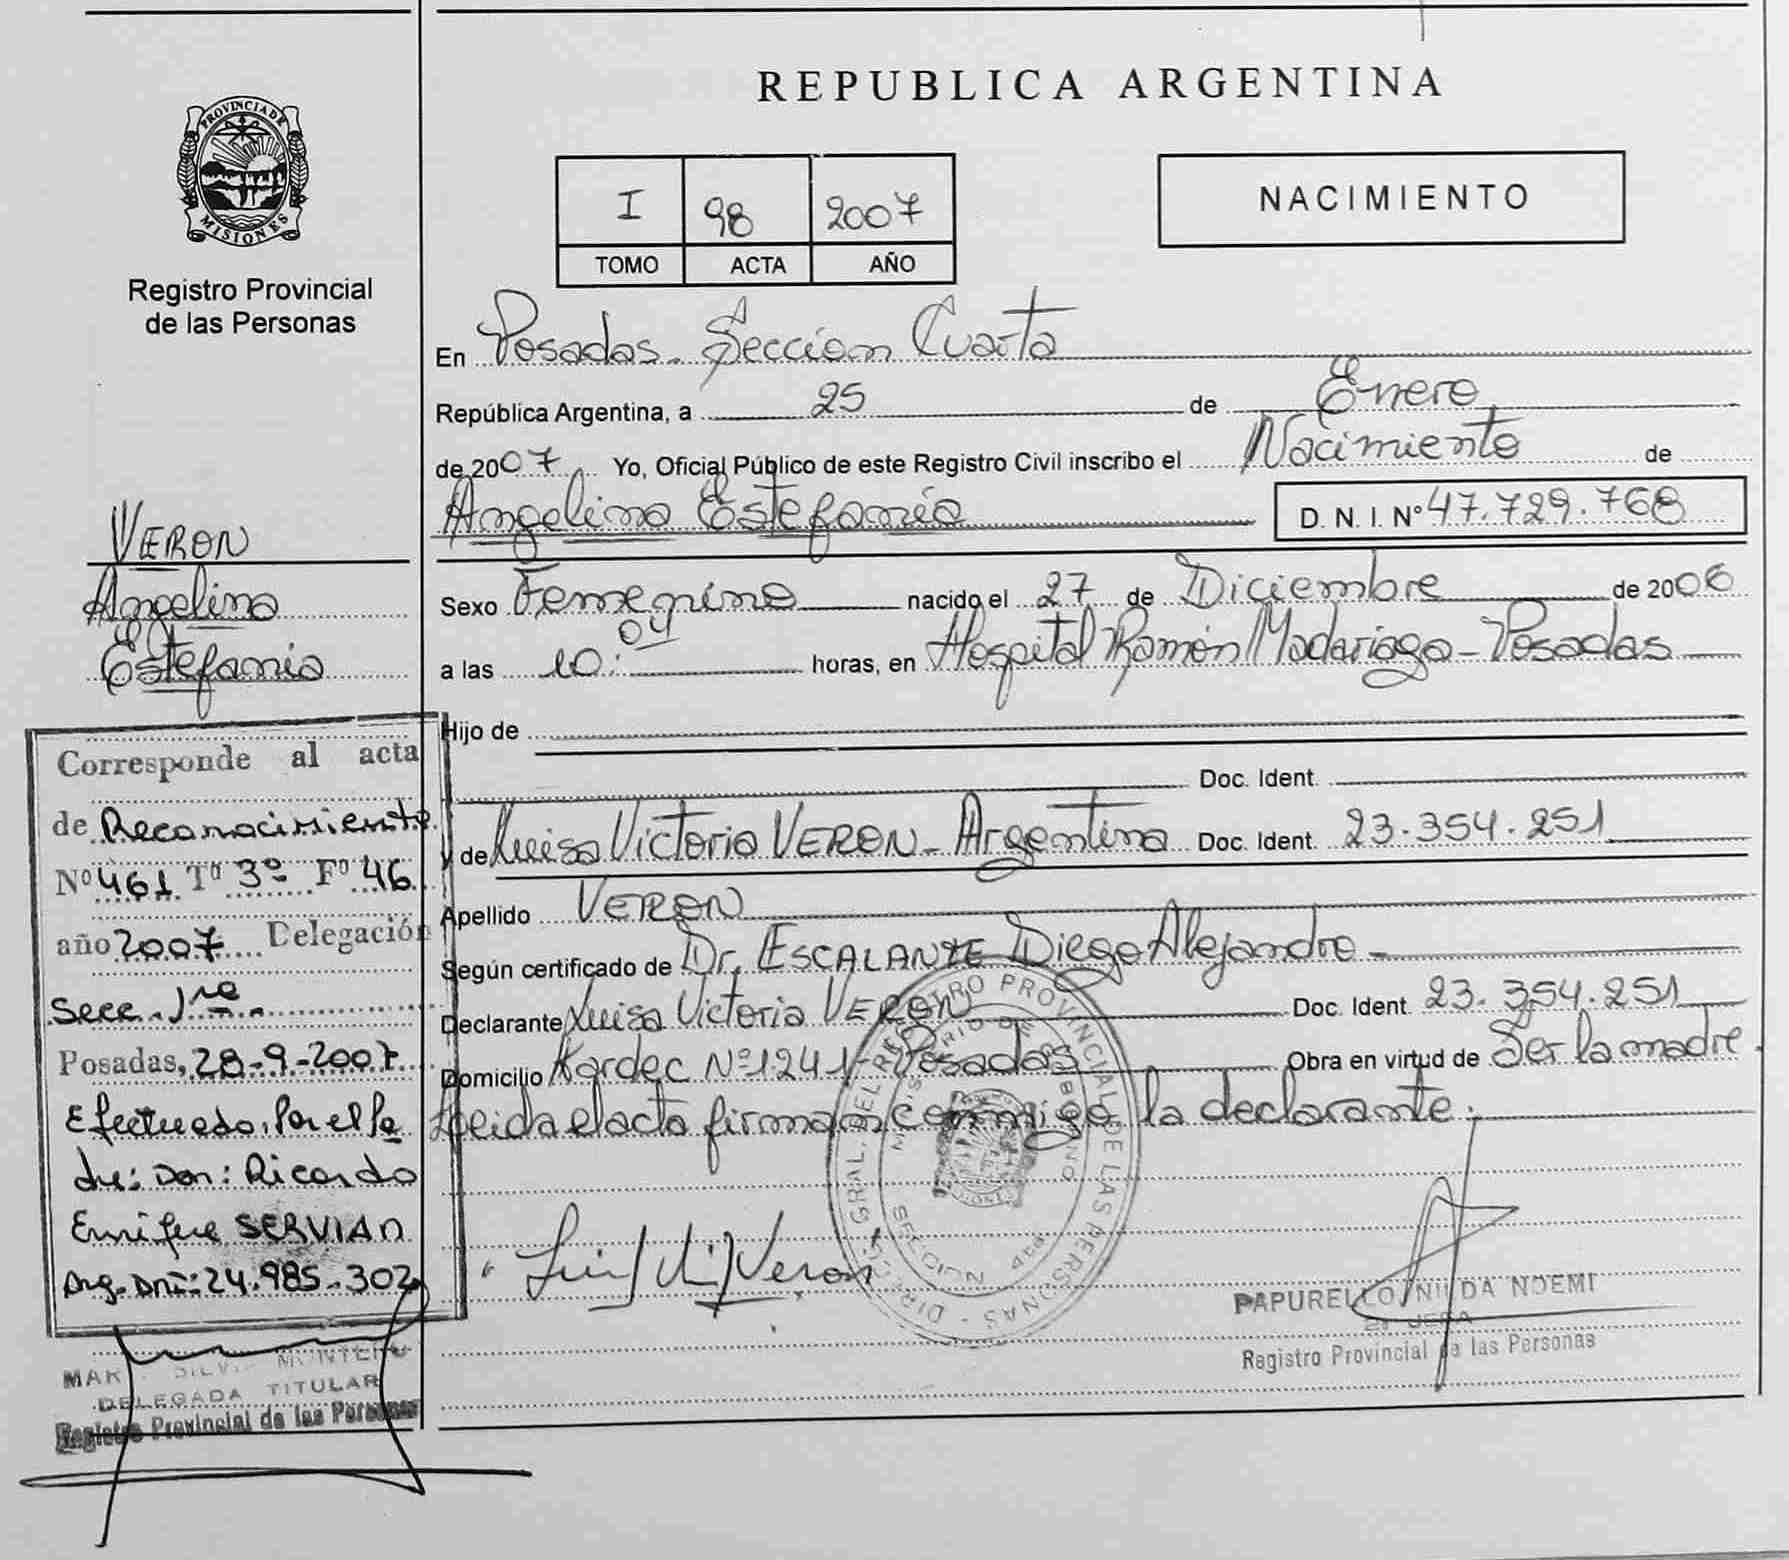 REPUBLICA ARGENTINA
PROVINCIA DE
MISIONES
Registro Provincial
de las Personas
I 98 2007
TOMO ACTA AÑO
NACIMIENTO
En Posadas - Seccion Cuarta
República Argentina, a 25 de Enero
de 2007 Yo, Oficial Público de este Registro Civil inscribo el Nacimiento de
Angelina Estefanía D. N. I. N° 47.729.768
Sexo Femenino nacido el 27 de Diciembre de 2006
a las 10:04 horas, en Hospital Ramón Madariaga - Posadas
Hijo de
Doc. Ident.
y de Luisa Victoria VERON - Argentina Doc. Ident. 23.354.251
Apellido VERON
Según certificado de Dr. ESCALANTE Diego Alejandro -
Declarante Luisa Victoria VERON Doc. Ident. 23.354.251
Domicilio Kardec Nº 1241 - Posadas Obra en virtud de Ser la madre.
Leida el acta firman conmigo la declarante.
VERON
Angelina
Estefania
Corresponde al acta
de Reconocimiento
Nº 461 Tº 3º Fº 46
año 2007 Delegación
Secc. 1ra
Posadas, 28-9-2007
Efectuado, Por el Pa
dre: Don: Ricardo
Enrique SERVIAN
Arg. DNI: 24.985.302
MONTERO
DELEGADA TITULAR
Registro Provincial de las Personas
Veron
DIRECC. GRAL. DEL REGISTRO PROVINCIAL DE LAS PERSONAS
MINISTERIO DE GOBIERNO
SECCION 4ta
PAPURELLO NILDA NOEMI
JEFA
Registro Provincial de las Personas